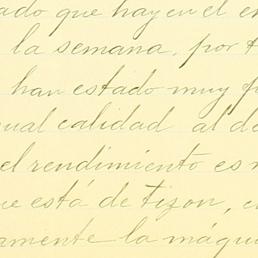 ado que hay en el en
la semana, por
han estado muy
ual calidad al de
el rendimiento es
ue está de tizon, e
amente la máqu